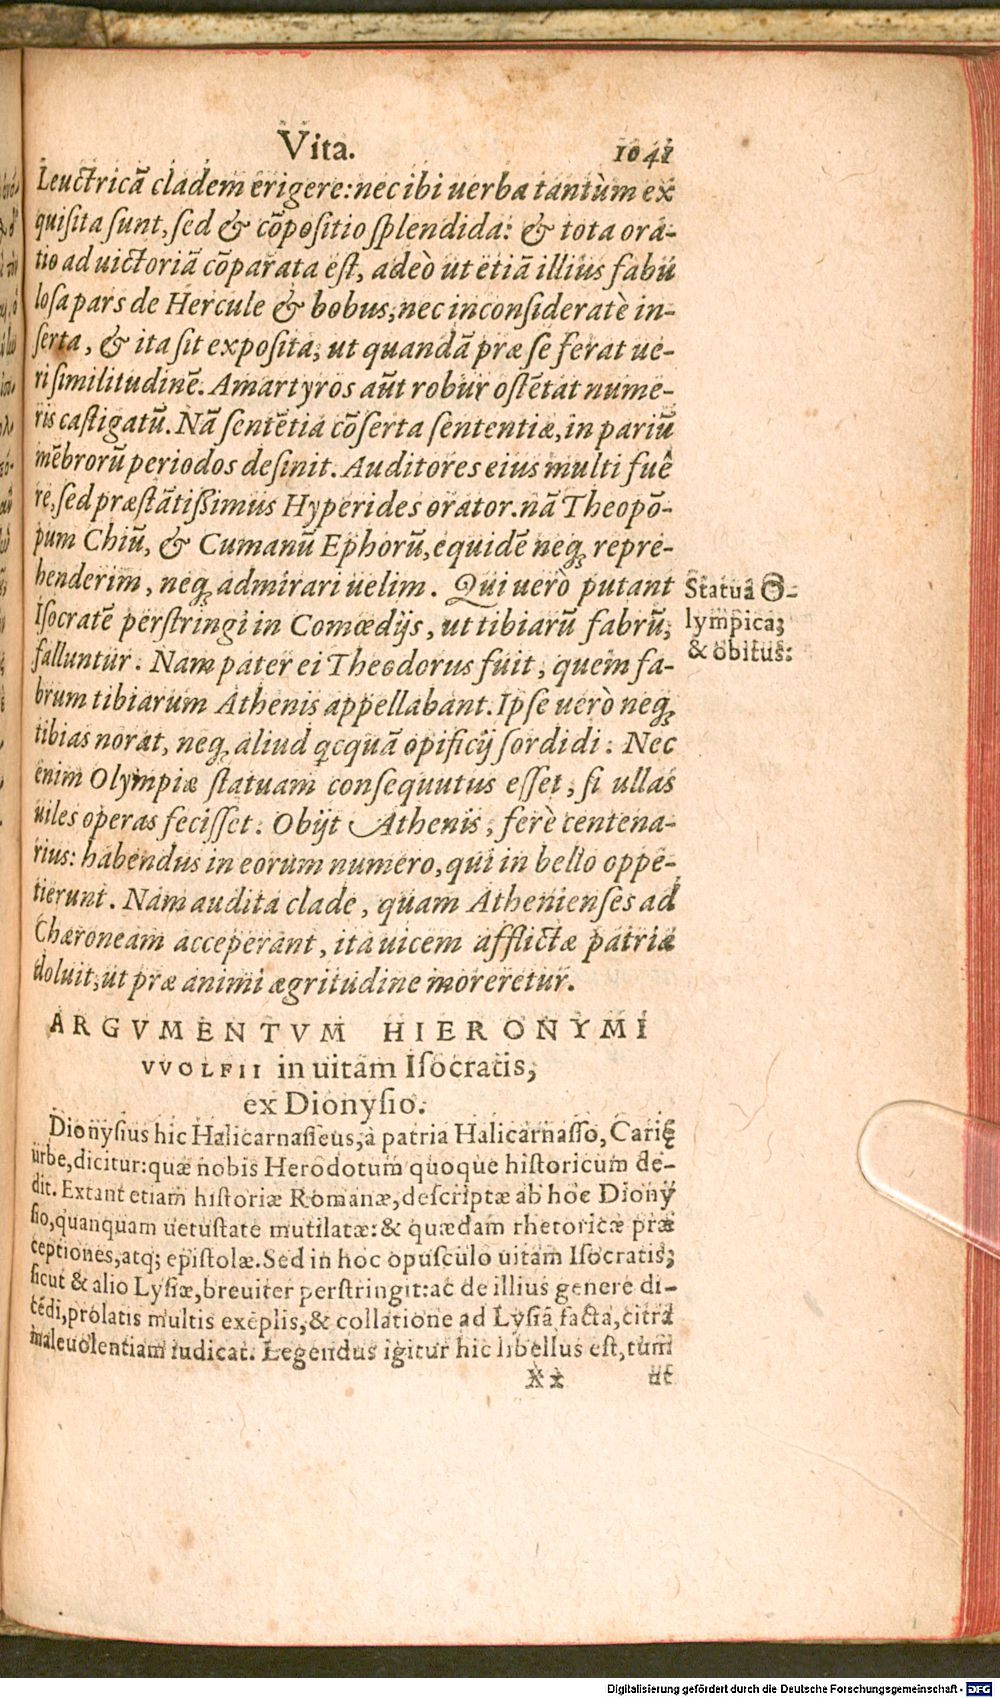 Vita. 1041
Leuctricā cladem erigere: nec ibi uerba tantùm ex
quisita sunt, sed & cōpositio splendida: & tota ora-
tio ad uictoriā cōparata est, adeò ut etiā illius fabu
losa pars de Hercule & bobus, nec inconsideratè in-
serta, & ita sit exposita, ut quandā præ se ferat ue-
ri similitudinē. Amartyros aūt robur ostētat nume-
ris castigatū. Nā sentētia cōserta sententiæ, in pariū
mēbrorū periodos desinit. Auditores eius multi fuê
re, sed præstātißimus Hyperides orator. nā Theopō-
pum Chiū, & Cumanū Ephorū, equidē neq; repre-
henderim, neq; admirari uelim. Qui uerò putant
Isocratē perstringi in Comœdijs, ut tibiarū fabrū,
falluntur. Nam pater ei Theodorus fuit, quem fa-
brum tibiarum Athenis appellabant. Ipse uerò neq;
tibias norat, neq; aliud qcquā opificij sordidi. Nec
enim Olympiæ statuam consequutus esset, si ullas
uiles operas fecisset. Obijt Athenis, ferè centena-
rius: habendus in eorum numero, qui in bello oppe-
tierunt. Nam audita clade, quam Athenienses ad
Chæroneam acceperant, ita uicem afflictæ patriæ
doluit, ut præ animi ægritudine moreretur.
Statua O-
lympica,
& obitus.
ARGVMENTVM HIERONYMI
VVOLFII in uitam Isocratis,
ex Dionysio.
Dionysius hic Halicarnasseus, à patria Halicarnasso, Carię
urbe, dicitur: quæ nobis Herodotum quoque historicum de-
dit. Extant etiam historiæ Romanæ, descriptæ ab hoc Diony
sio, quanquam uetustate mutilatæ: & quædam rhetoricæ præ
ceptiones, atq; epistolæ. Sed in hoc opusculo uitam Isocratis,
sicut & alio Lysiæ, breuiter perstringit: ac de illius genere di-
cēdi, prolatis multis exēplis, & collatione ad Lysiā facta, citra
maleuolentiam iudicat. Legendus igitur hic libellus est, tum
Xx ut
Digitalisierung gefördert durch die Deutsche Forschungsgemeinschaft - DFG